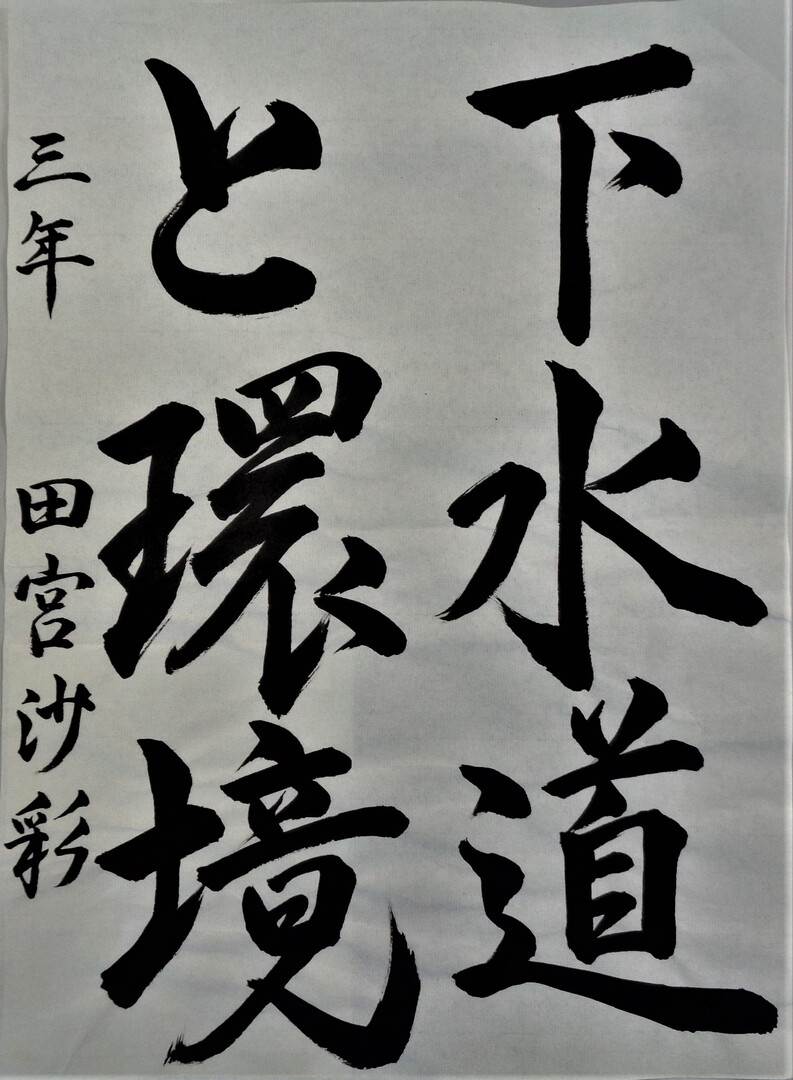 下水道
と環境
三年 田宮沙彩